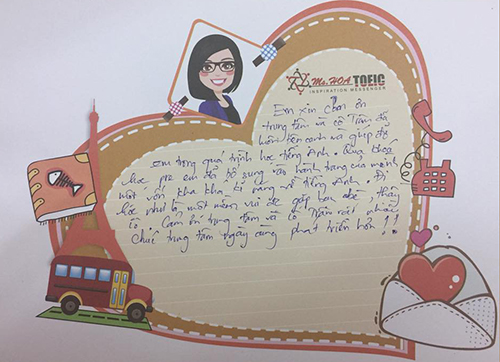 Ms.HOA TOEIC
INSPIRATION MESSENGER
Em xin cảm ơn
trung tâm và cô Tâm đã
luôn bên cạnh và giúp đỡ
em trong quá trình học tiếng Anh. Qua khóa
học, pre em đã bổ sung vào hành trang của mình
một vốn kha khá kĩ năng về tiếng Anh. Đi
học như là một niềm vui để gặp bạn bè, thầy
cô. Cảm ơn trung tâm và cô Tâm rất nhiều
Chúc trung tâm ngày càng phát triển hơn!!